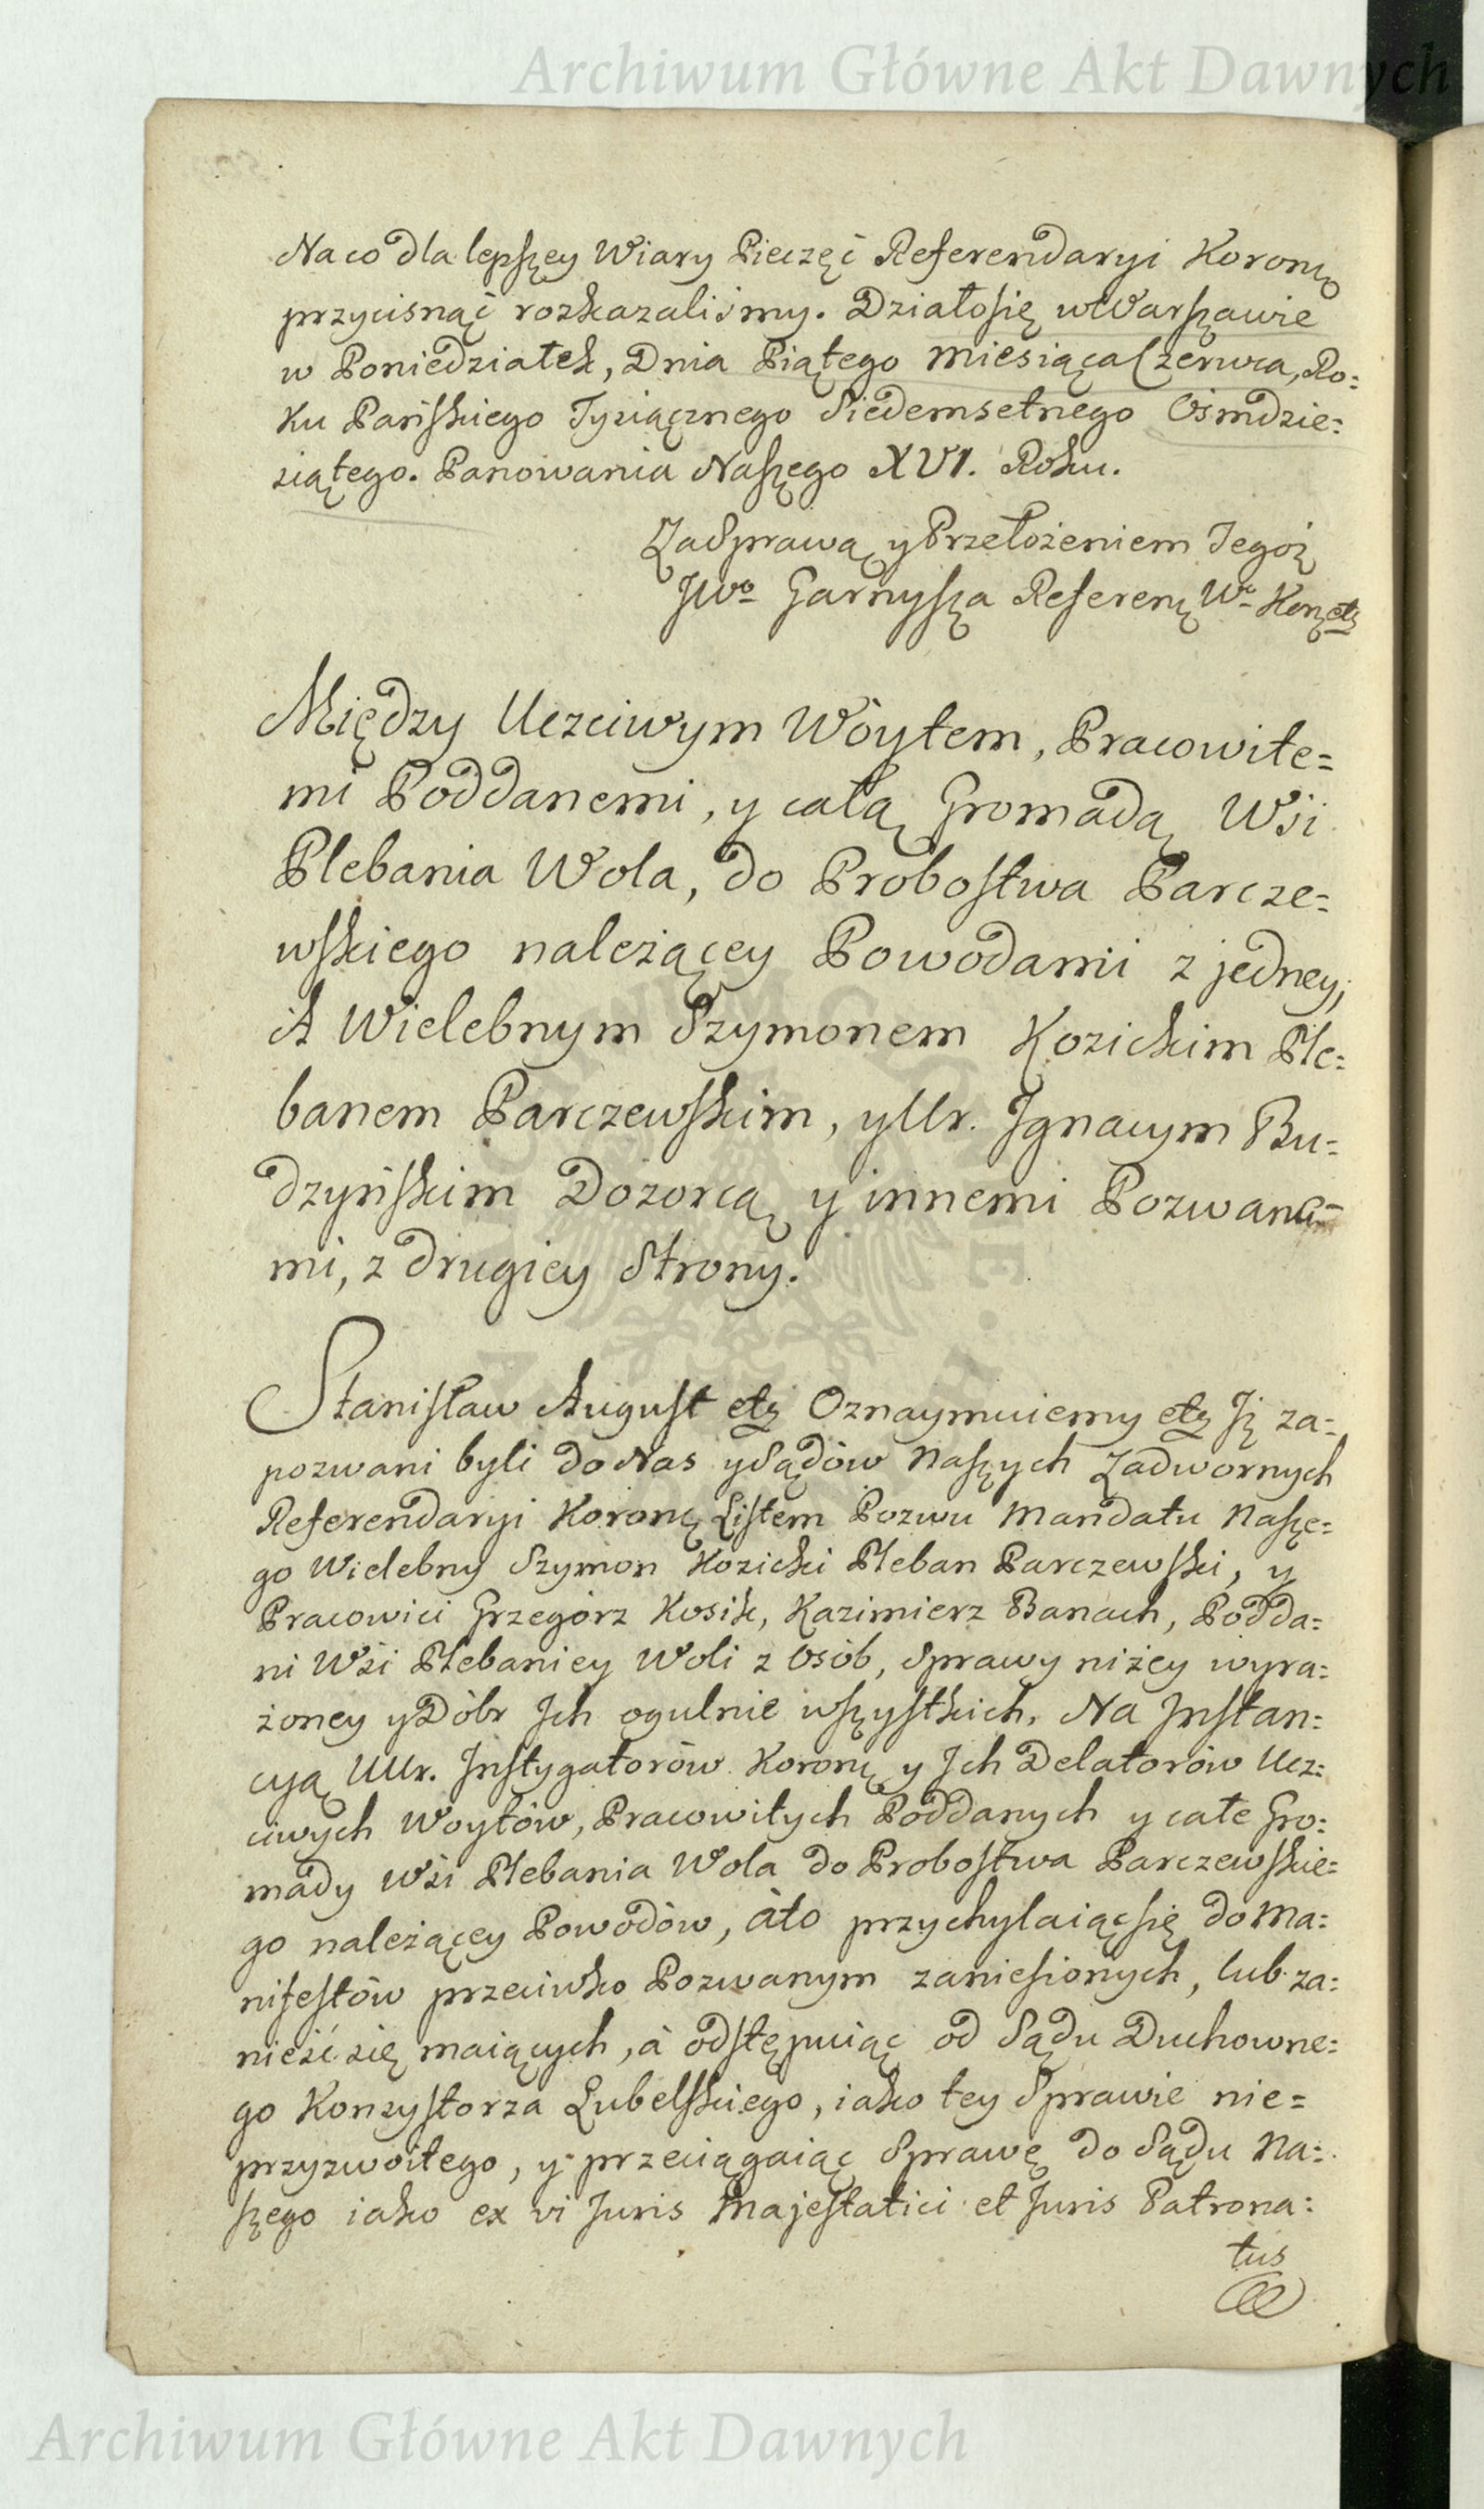 Archiwum Główne Akt Dawnych
Na co dla lepszey Wiary Pieczęć Referendaryi Koronę
przycisnąć rozkazaliśmy. Działo się w Warszawie
w Poniedziałek, Dnia Piątego Miesiąca Czerwca, Ro=
ku Pańskiego Tysiącznego Siedemsetnego Ośmdzie=
siątego. Panowania Naszego XVI. Roku.
Za Sprawą y Przełożeniem Tegoż
JWo Garnysza Referenę Wo Konę etę
Między Uczciwym Wóytem, Pracowite=
mi Poddanemi, y całą Gromadą Wśi
Plebania Wola, do Probostwa Parcze=
wskiego należącey Powodami z jedney;
A Wielebnym Szymonem Kozickim Ple=
banem Parczewskim, y Ur. Ignacym Bu=
dzyńskim Dozorcą y innemi Pozwane=
mi, z drugiey Strony.
Stanisław August etę Oznaymuiemy etę Iż za=
pozwani byli do Nas y Sądów Naszych Zadwornych
Referendaryi Koronę Listem Pozwu Mandatu Nasze=
go Wielebny Szymon Kozicki Pleban Parczewski, y
Pracowici Grzegórz Kosik, Kazimierz Banach, Podda=
ni Wśi Plebaniey Woli z Osób, Sprawy niżey wyra=
żoney y Dóbr Ich ogulnie wszystkich, Na Instan=
cyą UUr. Instygatorów Koronę y Ich Delatorów Ucz=
ciwych Woytów, Pracowitych Poddanych y całe Gro=
mady Wśi Plebania Wola do Probostwa Parczewskie=
go należącey Powodów, àto przychylaiąc się do Ma=
nifestów przeciwko Pozwanym zaniesionych, lub za=
nieść się maiących, à odstępuiąc od Sądu Duchowne=
go Konzystorza Lubelskiego, iako tey Sprawie nie=
przyzwoitego, y przeciągaiąc Sprawę do Sądu Na=
szego iako ex vi Juris Majestatici et Juris Patrona=
tus
Archiwum Główne Akt Dawnych